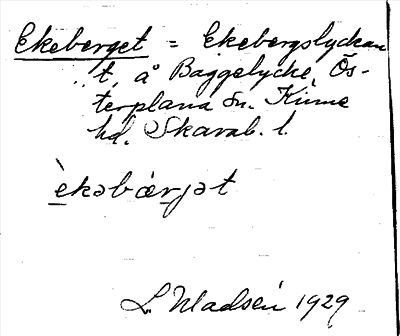 Ekeberget = Ekebergslyckan
"t, å Baggelycke, Ös-
terplana sn. Kinne
hd. Skarab. l.
èkəbǽrjət
L. Madsén 1929